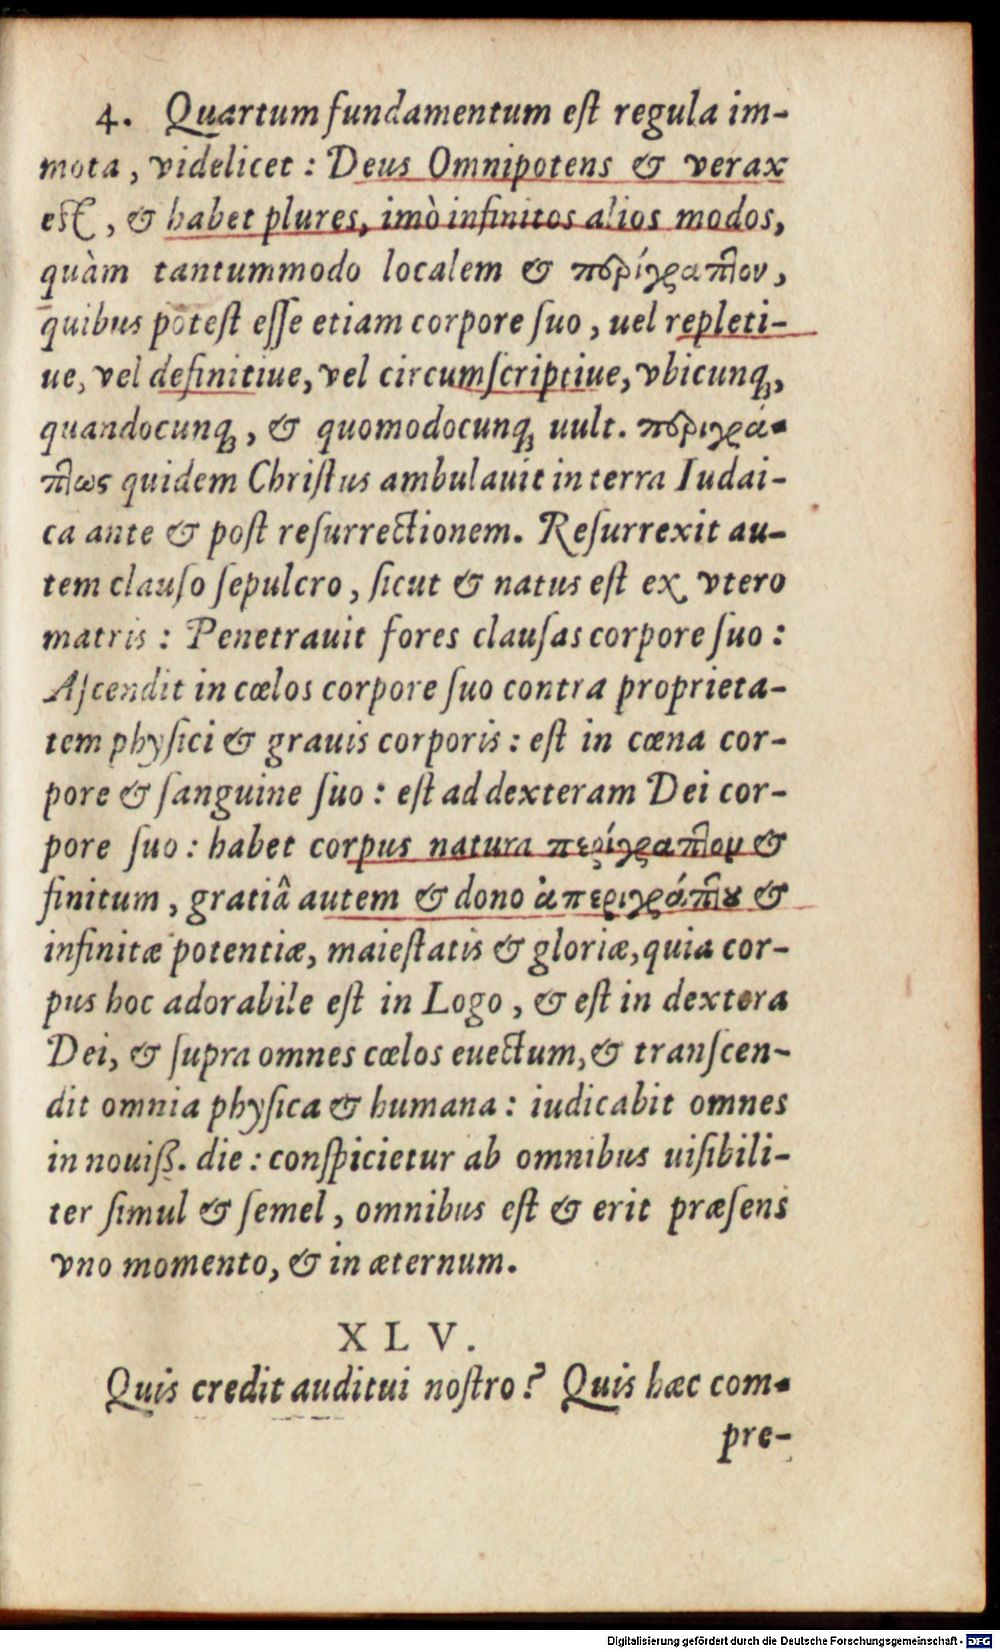 4. Quartum fundamentum est regula im-
mota, videlicet: Deus Omnipotens & verax
est, & habet plures, imò infinitos alios modos,
quàm tantummodo localem & περίγραπτον,
quibus potest esse etiam corpore suo, uel repleti-
ue, vel definitiue, vel circumscriptiue, vbicunq;,
quandocunq;, & quomodocunq; uult. περιγρά-
πτως quidem Christus ambulauit in terra Iudai-
ca ante & post resurrectionem. Resurrexit au-
tem clauso sepulcro, sicut & natus est ex vtero
matris: Penetrauit fores clausas corpore suo:
Ascendit in cœlos corpore suo contra proprieta-
tem physici & grauis corporis: est in cœna cor-
pore & sanguine suo: est ad dexteram Dei cor-
pore suo: habet corpus natura περίγραπτον &
finitum, gratiâ autem & dono ἀπεριγράπτου &
infinitæ potentiæ, maiestatis & gloriæ, quia cor-
pus hoc adorabile est in Logo, & est in dextera
Dei, & supra omnes cœlos euectum, & transcen-
dit omnia physica & humana: iudicabit omnes
in nouiss. die: conspicietur ab omnibus uisibili-
ter simul & semel, omnibus est & erit præsens
vno momento, & in æternum.
XLV.
Quis credit auditui nostro? Quis hæc com-
pre-
Digitalisierung gefördert durch die Deutsche Forschungsgemeinschaft - DFG